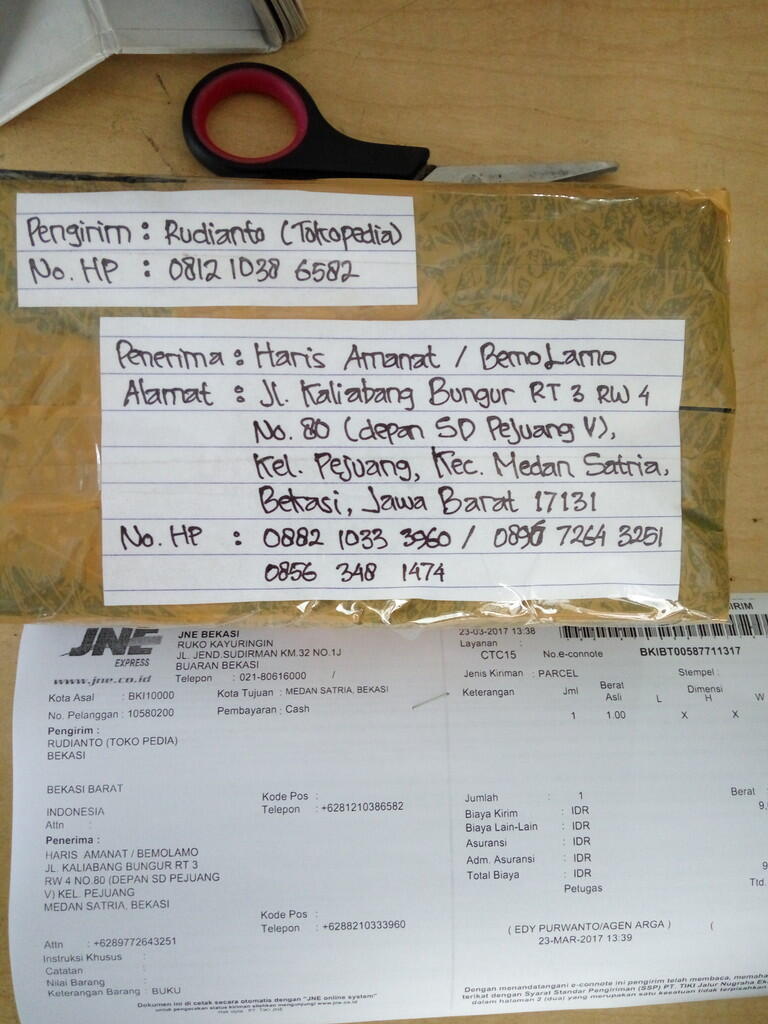 Pengirim : Rudianto (Tokopedia)
No. HP : 0812 1038 6582
Penerima : Haris Amanat / BemoLamo
Alamat : Jl. Kaliabang Bungur RT 3 RW 4
No. 80 (depan SD Pejuang V),
Kel. Pejuang, Kec. Medan Satria,
Bekasi, Jawa Barat 17131
No. HP : 0882 1033 3960 / 0896 7264 3251
0856 348 1474
JNE
EXPRESS
www.jne.co.id
JNE BEKASI
RUKO KAYURINGIN
JL. JEND.SUDIRMAN KM.32 NO.1J
BUARAN BEKASI
Telepon : 021-80616000 /
Kota Asal : BKI10000 Kota Tujuan : MEDAN SATRIA, BEKASI
No. Pelanggan : 10580200 Pembayaran : Cash
Pengirim :
RUDIANTO (TOKO PEDIA)
BEKASI
BEKASI BARAT
Kode Pos :
INDONESIA Telepon : +6281210386582
Attn :
Penerima :
HARIS AMANAT / BEMOLAMO
JL. KALIABANG BUNGUR RT 3
RW 4 NO.80 (DEPAN SD PEJUANG
V) KEL. PEJUANG
MEDAN SATRIA, BEKASI
Kode Pos :
Telepon : +6288210333960
Attn : +6289772643251
Instruksi Khusus :
Catatan :
Nilai Barang :
Keterangan Barang : BUKU
Dokumen ini di cetak secara otomatis dengan "JNE online system"
23-03-2017 13:38
Layanan :
CTC15 No.e-connote BKIBT00587711317
Jenis Kiriman : PARCEL Stempel :
Keterangan Jml Berat Asli Dimensi
L H W
1 1.00 X X
Jumlah : 1 Berat :
Biaya Kirim : IDR
Biaya Lain-Lain : IDR
Asuransi : IDR
Adm. Asuransi : IDR
Total Biaya : IDR
Petugas Ttd.
( EDY PURWANTO/AGEN ARGA ) (
23-MAR-2017 13:39
Dengan menandatangani e-connote ini pengirim telah membaca,
terikat dengan Syarat Standar Pengiriman (SSP) PT. TIKI Jalur Nugraha
dalam halaman 2 (dua) yang merupakan satu kesatuan tidak terpisahkan